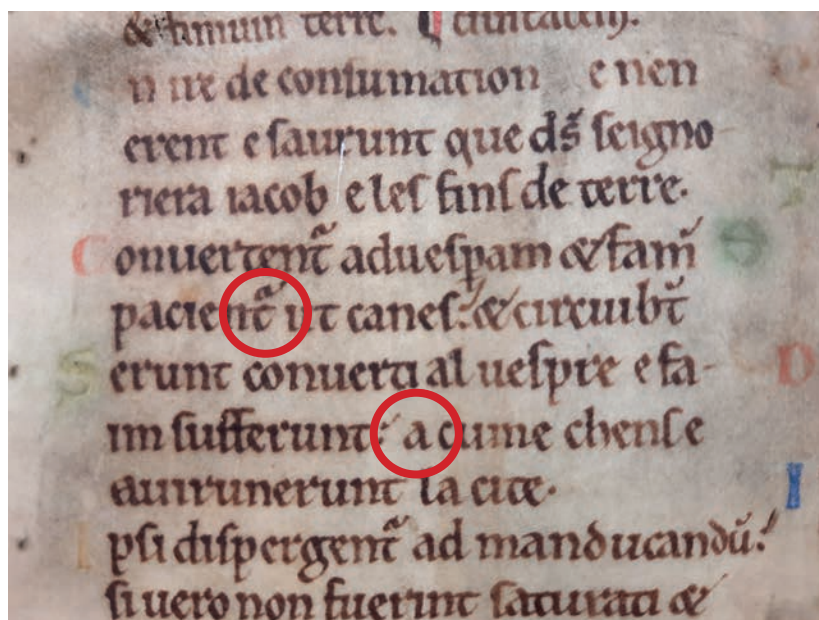 & finium terre.
n ire de consumation e nen
erent e saurunt que ds̃ seigno
riera iacob e les fins de terre.
Conuertent̃ aduespam & fam̃
pacient̃ ut canes: & circuibt̃
Serunt conuerti al uespre e fa-
im sufferunt: a cume chens e
auirunerunt la cite.
Ipsi dispergent̃ ad manducandũ:
si uero non fuerint saturati &
D
I